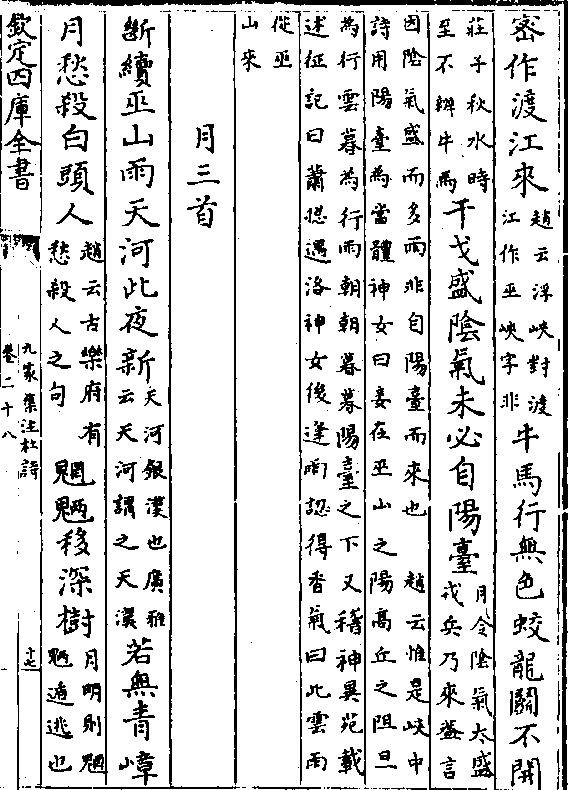 密作渡江來趙云浮峽對渡江作巫峽字非牛馬行無色蛟龍鬭不開
莊子秋水時至不辨牛馬干戈盛陰氣未必自陽臺月令陰氣太盛戎兵乃來蓋言
因陰氣盛而多雨非自陽臺而來也 趙云惟是峽中
詩用陽臺為當體神女曰妾在巫山之陽高丘之阻旦
為行雲暮為行雨朝朝暮暮陽臺之下又稽神異苑載
述征記曰蕭總遇洛神女後逢雨認得香氣曰此雲雨
從巫山來
月三首
斷續巫山雨天河此夜新天河銀漢也廣雅云天河謂之天漢若無青嶂
月愁殺白頭人趙云古樂府有愁殺人之句魍魎移深樹月明則魍魎遁逃也
欽定四庫全書
九家集注杜詩
卷二十八
十七